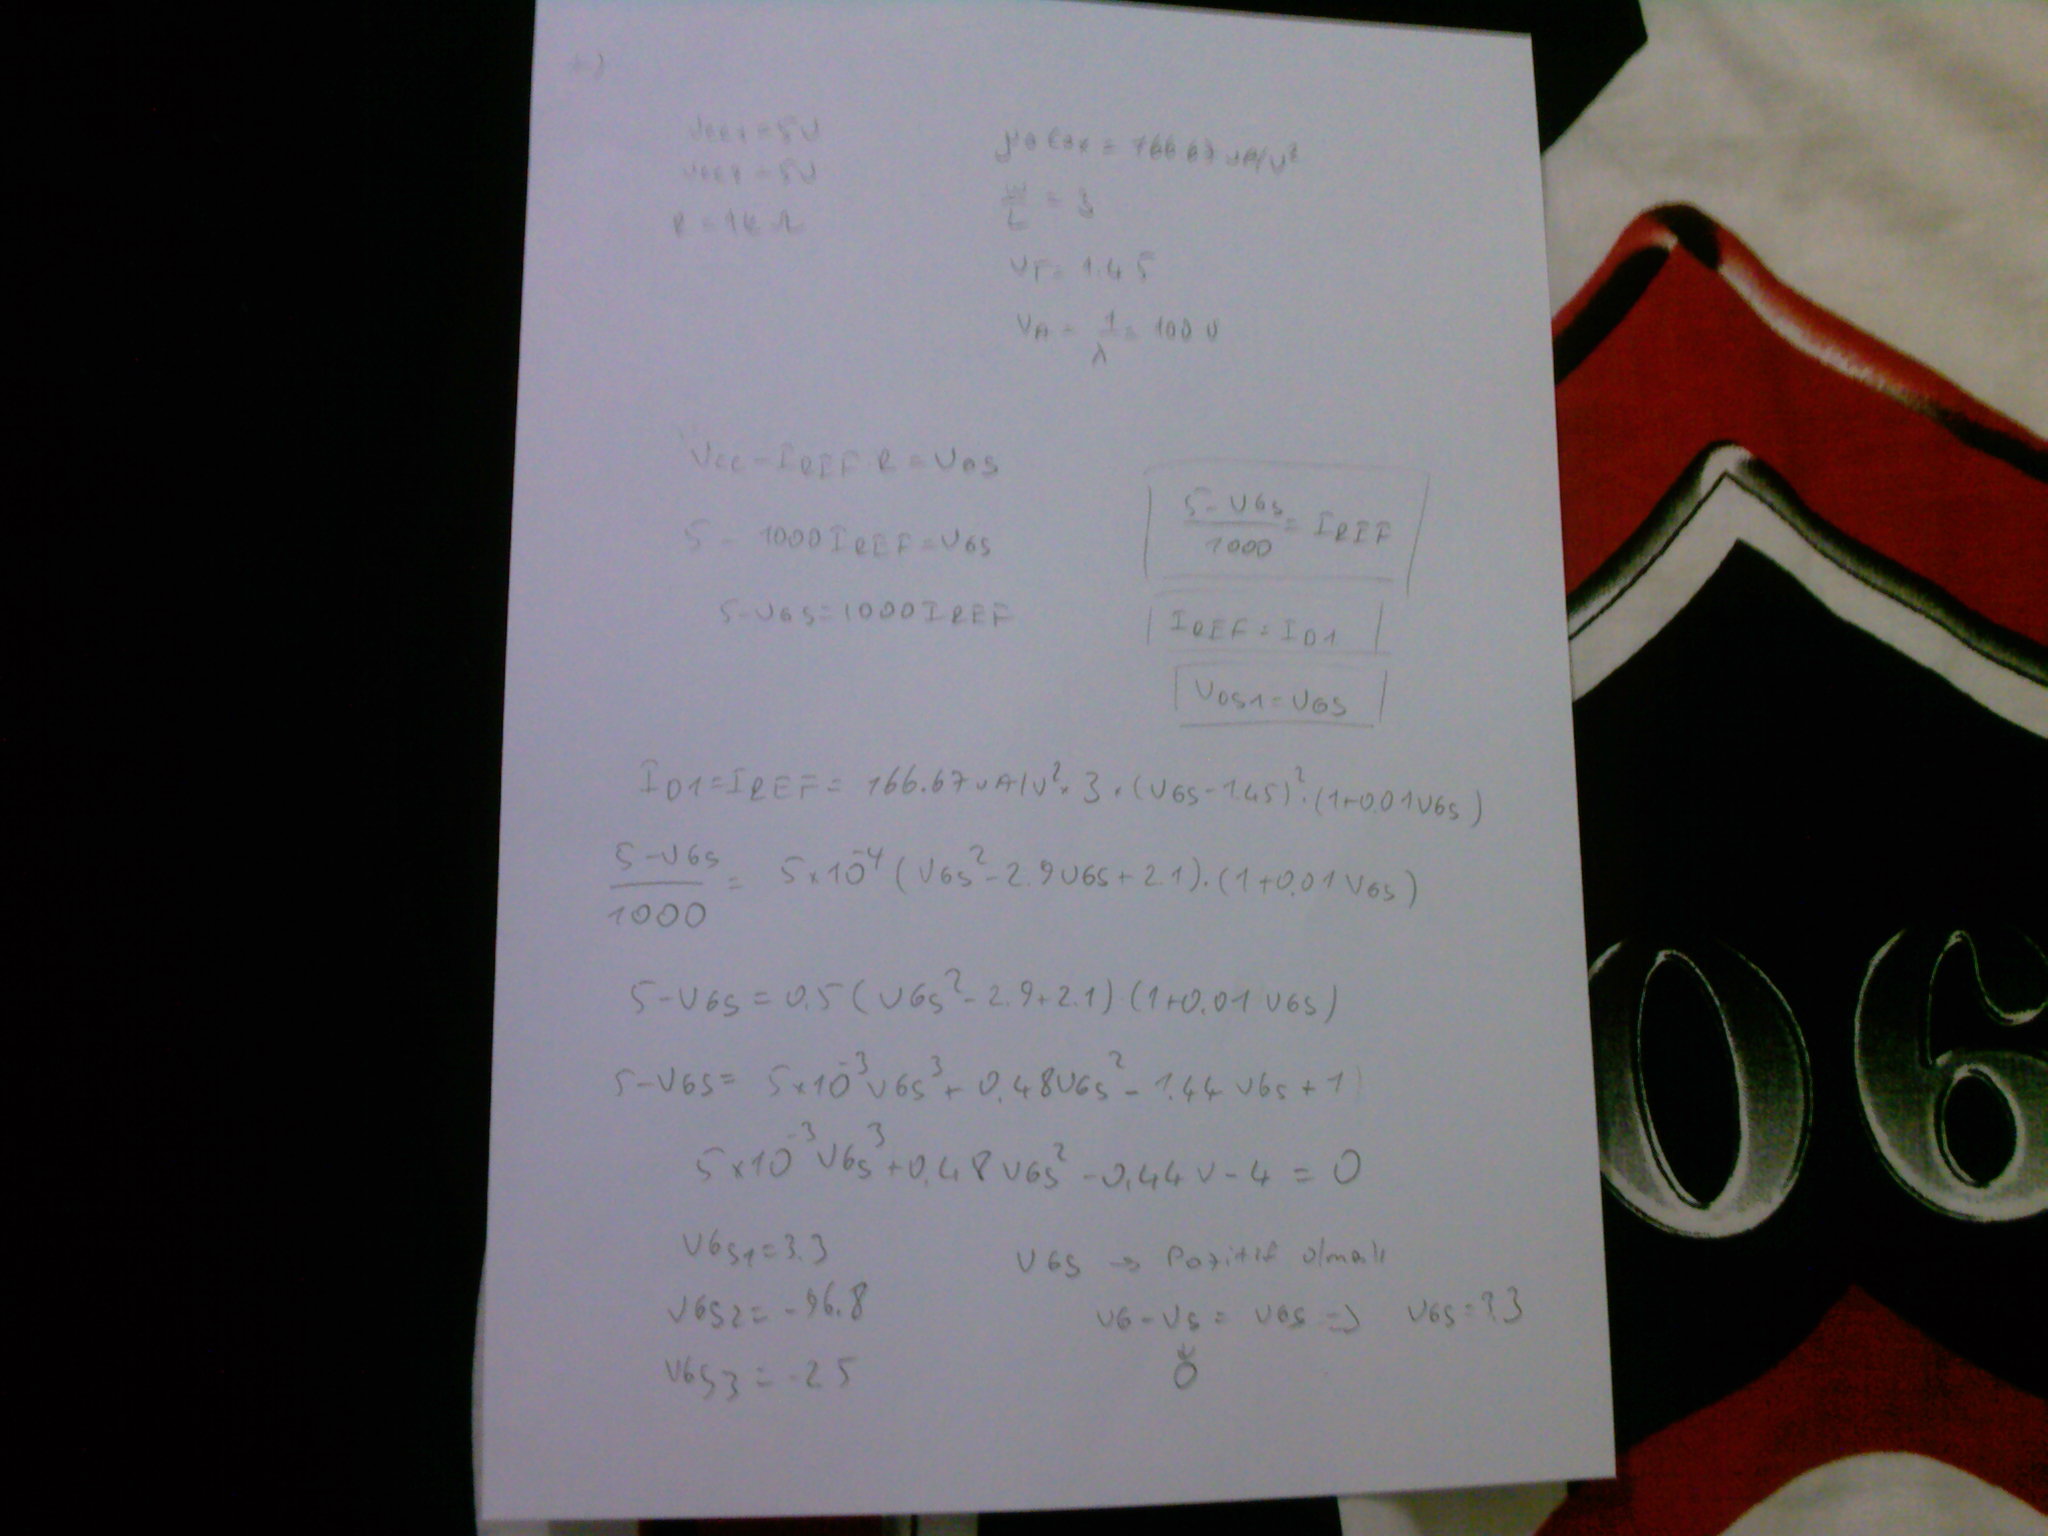 +)
VCC1 = 5V
VCC2 = 5V
R = 1k Ω
μ0 Cox = 166.67 uA/V²
W/L = 3
VT = 1.45
VA = 1/λ = 100 V
VCC - IREF R = VGS
5 - 1000 IREF = VGS
5 - VGS = 1000 IREF
(5 - VGS)/1000 = IREF
IREF = ID1
VDS1 = VGS
ID1 = IREF = 166.67 uA/V² × 3 . (VGS - 1.45)² . (1+0.01VGS)
(5 - VGS)/1000 = 5×10⁻⁴ (VGS² - 2.9VGS + 2.1) . (1+0.01 VGS)
5 - VGS = 0.5 (VGS² - 2.9 + 2.1) (1+0.01 VGS)
5 - VGS = 5×10⁻³ VGS³ + 0.48VGS² - 1.44 VGS + 1
5×10⁻³ VGS³ + 0.48 VGS² - 0.44 V - 4 = 0
VGS1 = 3.3
VGS2 = -96.8
VGS3 = -2.5
VGS → Pozitif olmalı
VG - VS = VGS => VGS = 3.3
↓
0
06